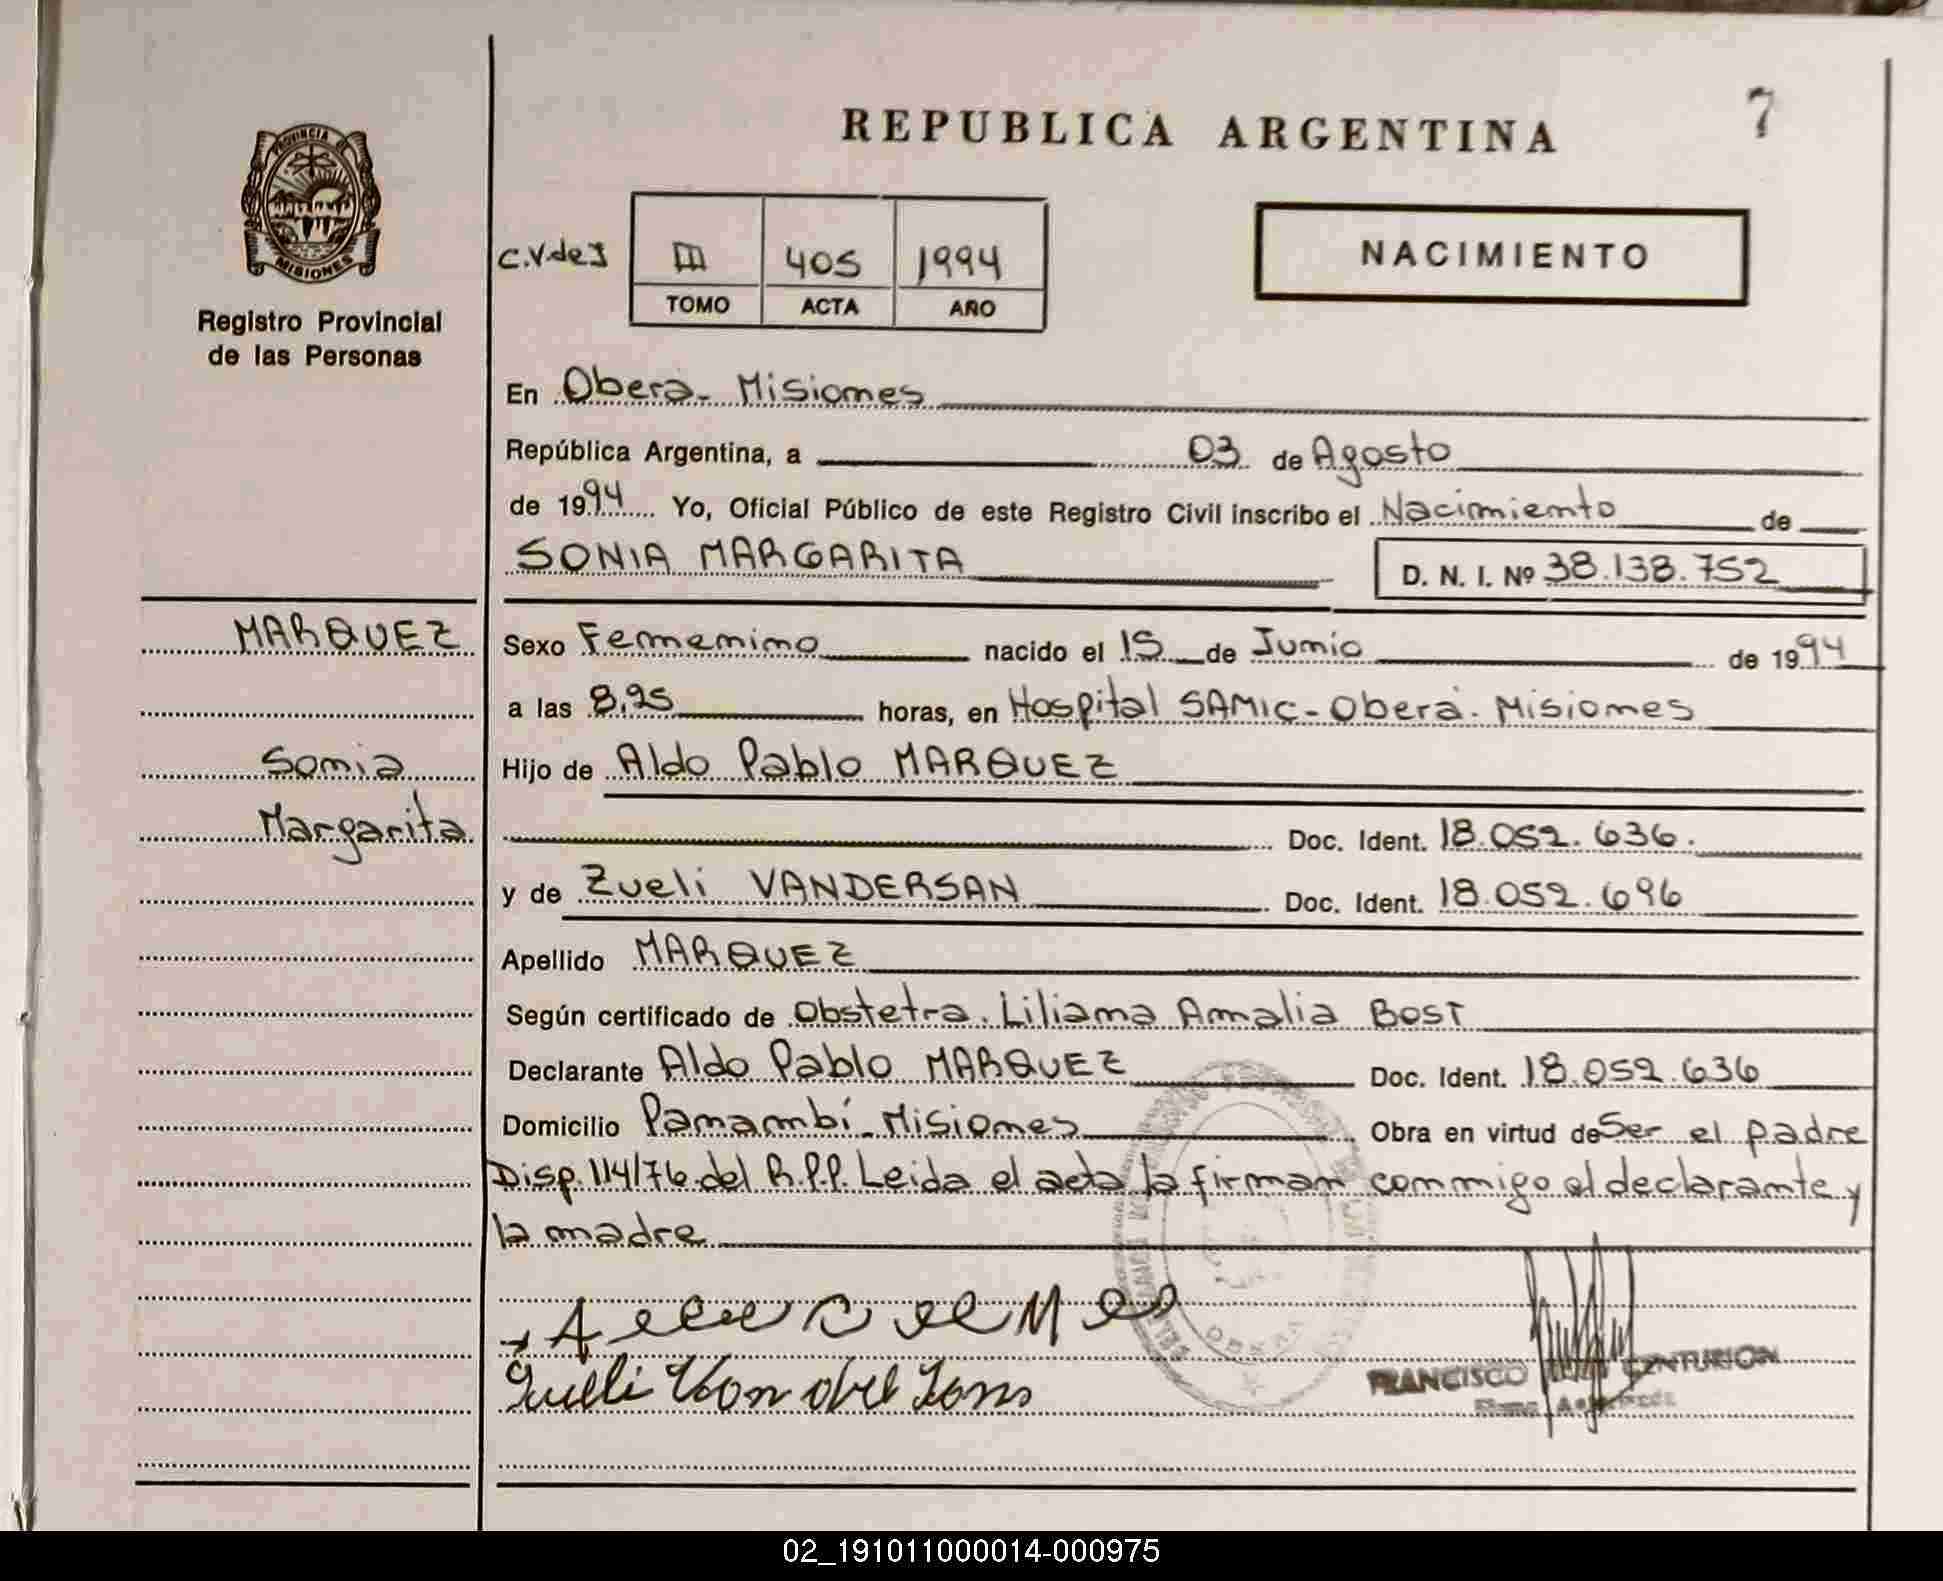 REPUBLICA ARGENTINA
7
PROVINCIA D
MISIONES
Registro Provincial
de las Personas
C.V.de I
III 405 1994
TOMO ACTA AÑO
NACIMIENTO
En Oberá - Misiones
República Argentina, a 03 de Agosto
de 1994 Yo, Oficial Público de este Registro Civil inscribo el Nacimiento de
SONIA MARGARITA D. N. I. Nº 38.138.752
MARQUEZ
Sonia
Margarita
Sexo Femenino nacido el 15 de Junio de 1994
a las 8,25 horas, en Hospital SAMIC - Oberá - Misiones
Hijo de Aldo Pablo MARQUEZ
Doc. Ident. 18.052.636.
y de Zueli VANDERSAN Doc. Ident. 18.052.696
Apellido MARQUEZ
Según certificado de Obstetra. Liliana Amalia BOST
Declarante Aldo Pablo MARQUEZ Doc. Ident. 18.052.636
Domicilio Panambí - Misiones Obra en virtud de Ser el padre
Disp. 114/76 del R.P.P. Leida el acta la firman conmigo el declarante y
la madre
FRANCISCO CENTURION
02_191011000014-000975